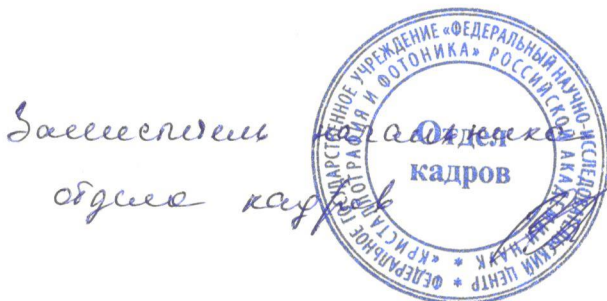 Заместитель начальника
отдела кадров
ФЕДЕРАЛЬНОЕ ГОСУДАРСТВЕННОЕ УЧРЕЖДЕНИЕ «ФЕДЕРАЛЬНЫЙ НАУЧНО-ИССЛЕДОВАТЕЛЬСКИЙ ЦЕНТР
«КРИСТАЛЛОГРАФИЯ И ФОТОНИКА» РОССИЙСКОЙ АКАДЕМИИ НАУК
Отдел
кадров